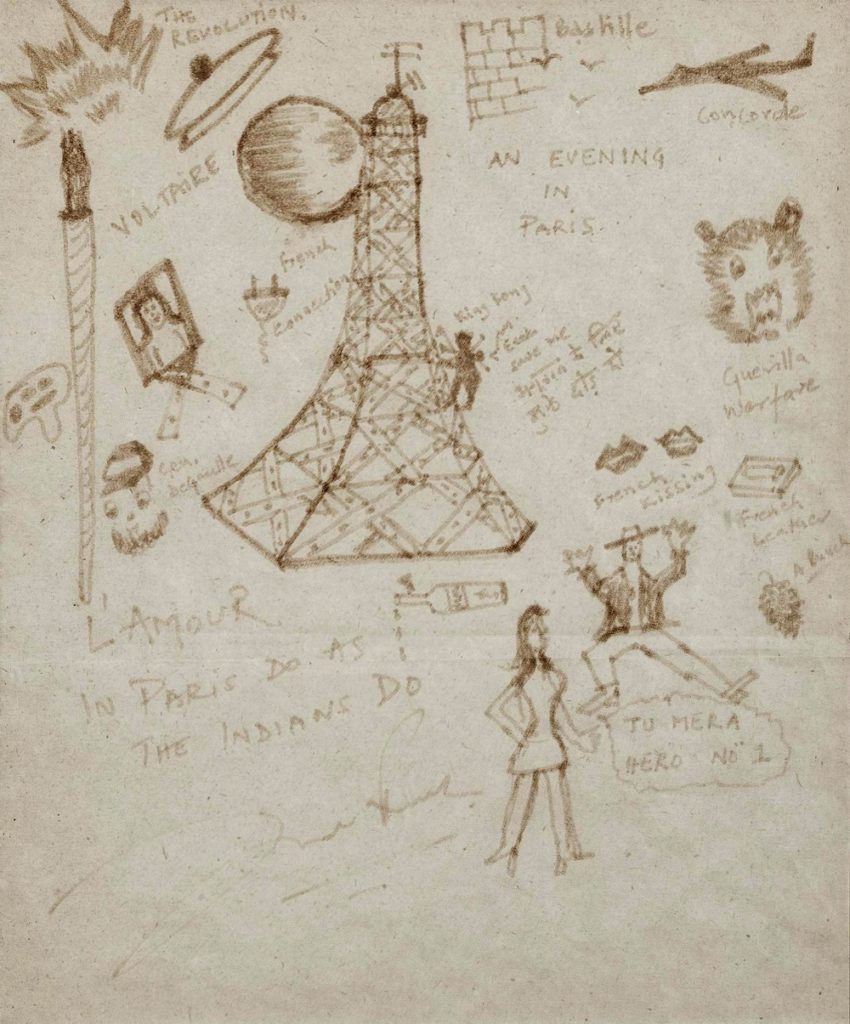 THE
REVOLUTION.
Bastille
Concorde
VOLTAIRE
AN EVENING
IN
PARIS.
French
Connection
King Kong
save me
Guerilla
Warfare
Gen.
French
Kissing
French
Leather
L'AMOUR
IN PARIS DO AS
THE INDIANS DO
TU MERA
HERO NO 1